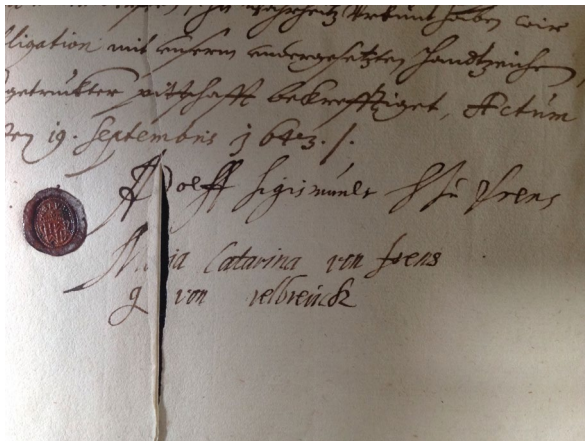 zu Wahrheitz Vrkunt haben wir
ligation mit unserm undergesetzten Handtzeichen,
getruckter pittschafft bekrefftiget, Actum
ten 19. Septembris 1643 ./.
Adolff Sigismundt H zu Frens
Maria Catarina von frens
g von velbreuck